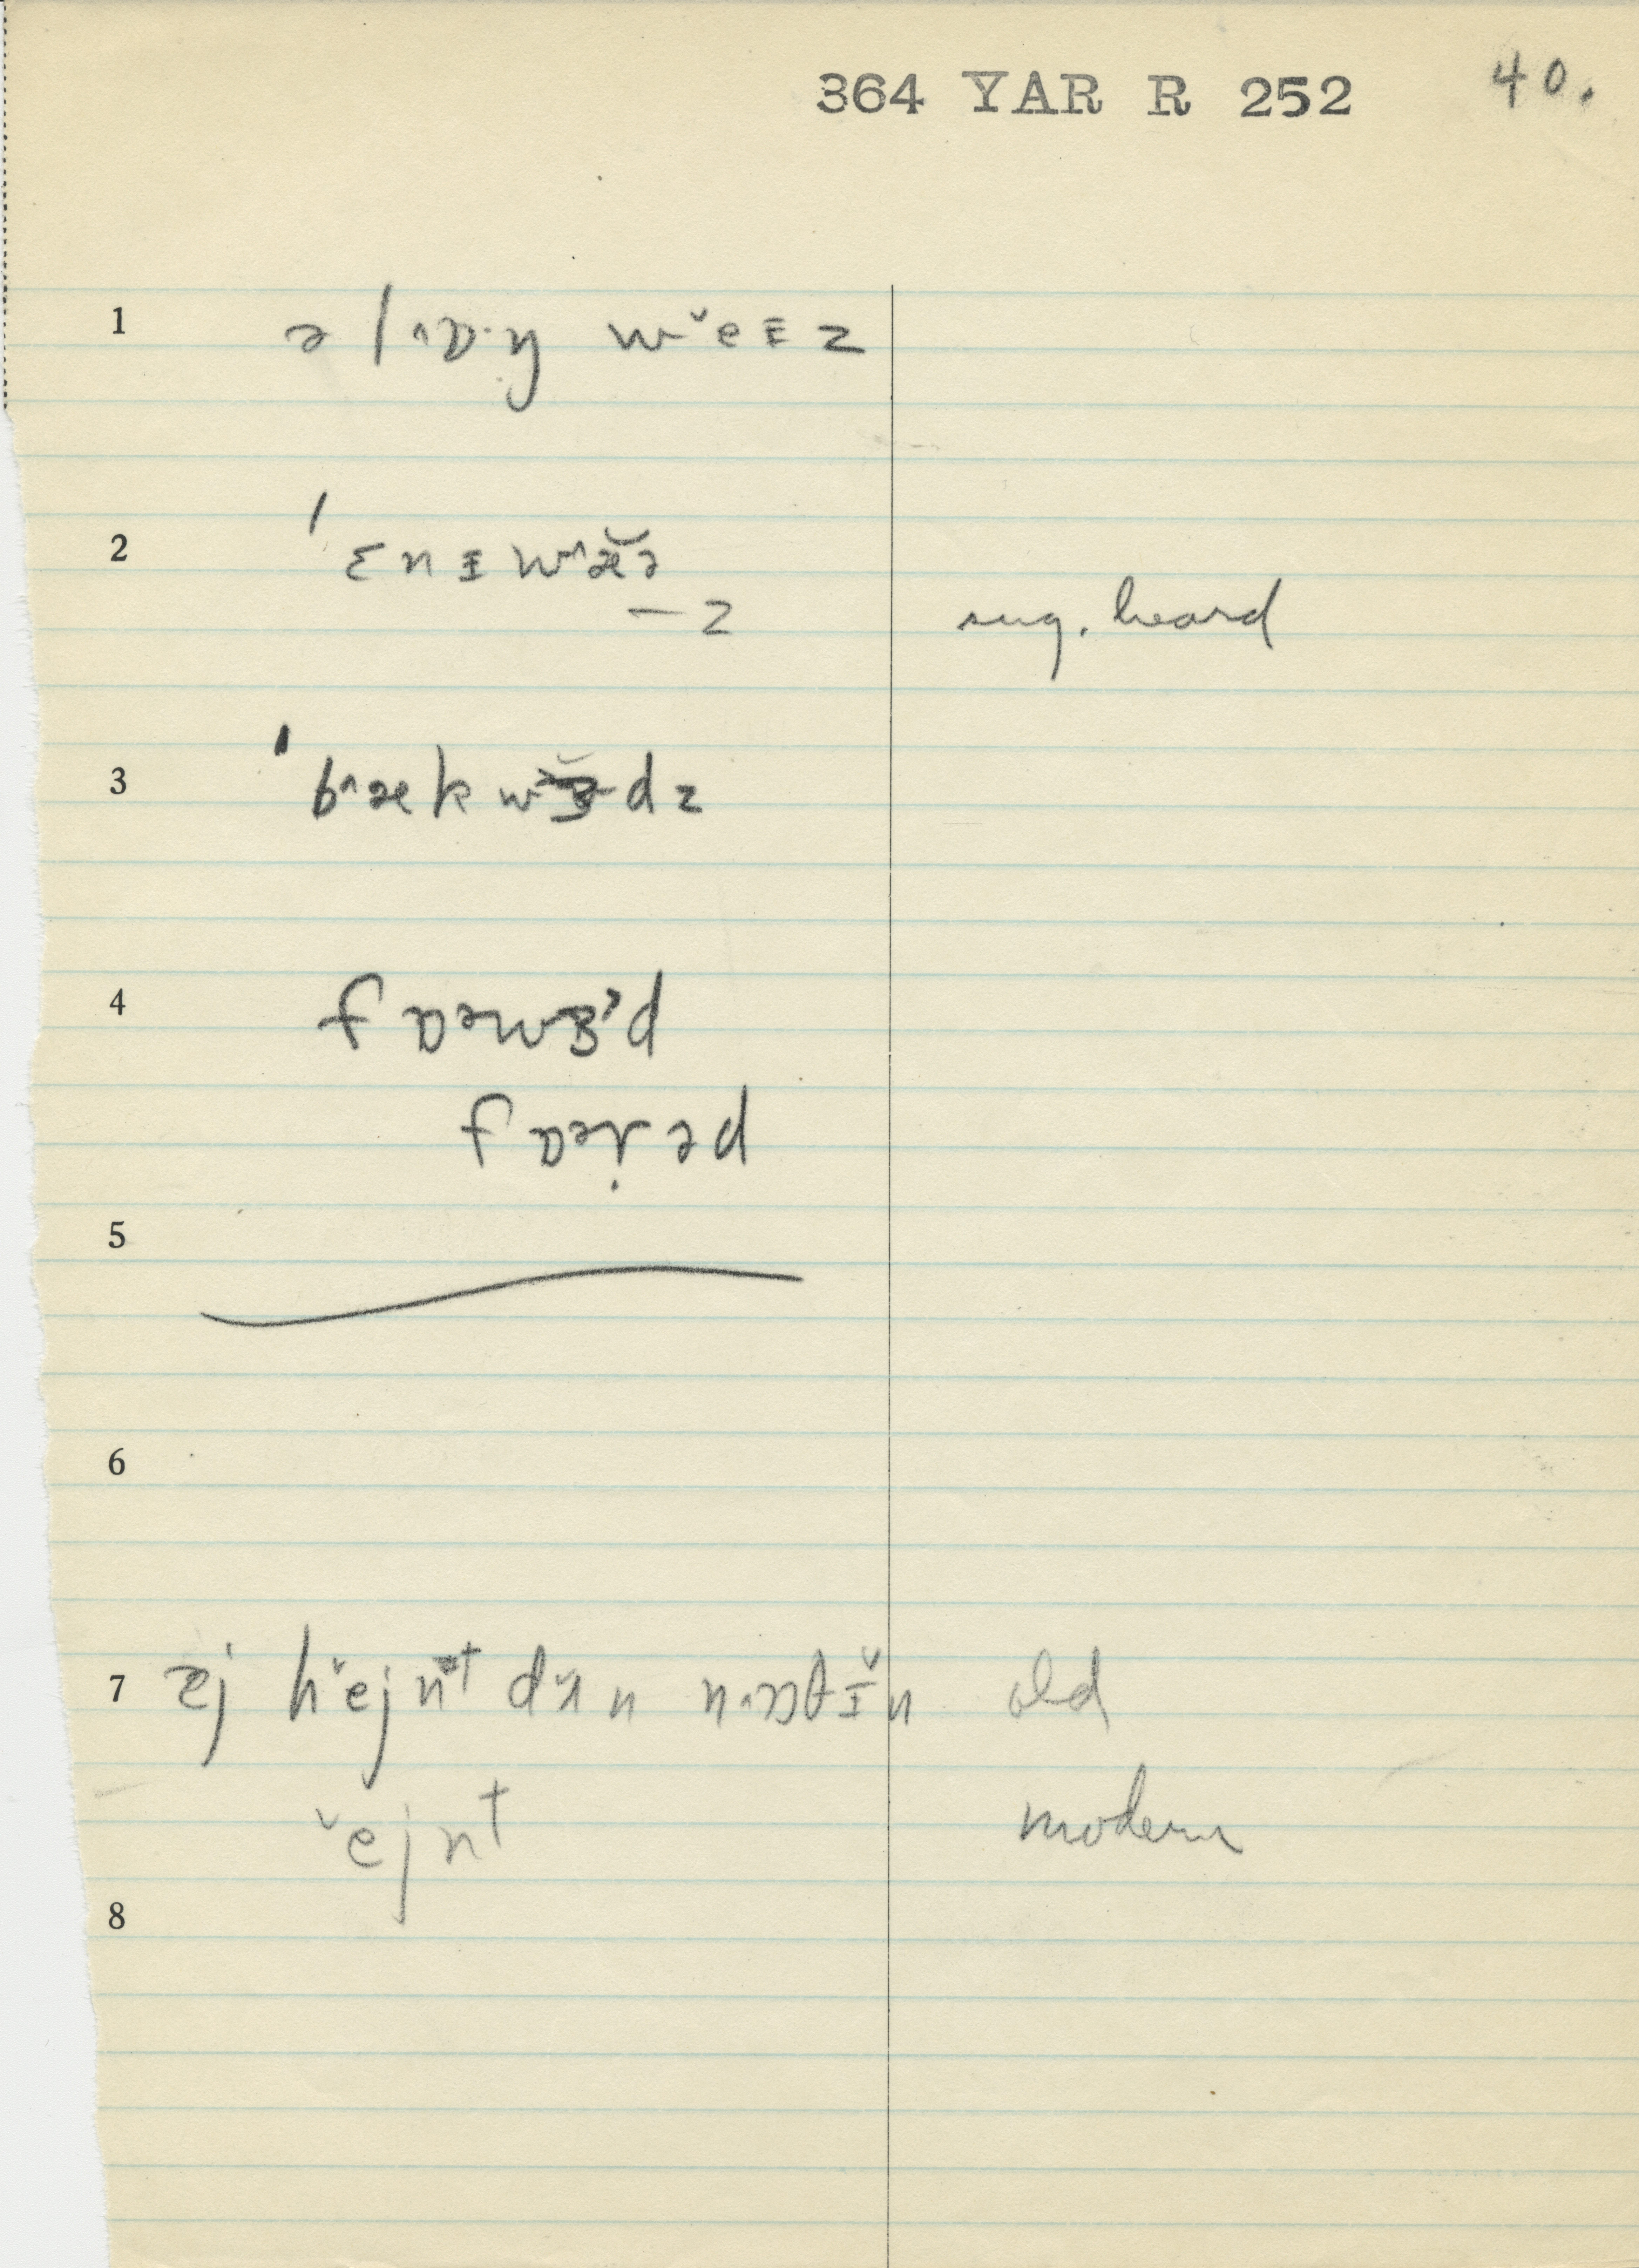 364 YAR R 252 40.
1 ə l ˄ɒ·ŋ w˅eɪz
2 ˈɛnɪw˄æ̆ə
-z sug. heard
3 ˈb˄æk w dz
4 fɒəwɜ˞d
fɒəṛəd
5
6
7 h˅ejnt d˅ʌn n˄ʌθɪ̆n old
˅ejnt modern
8